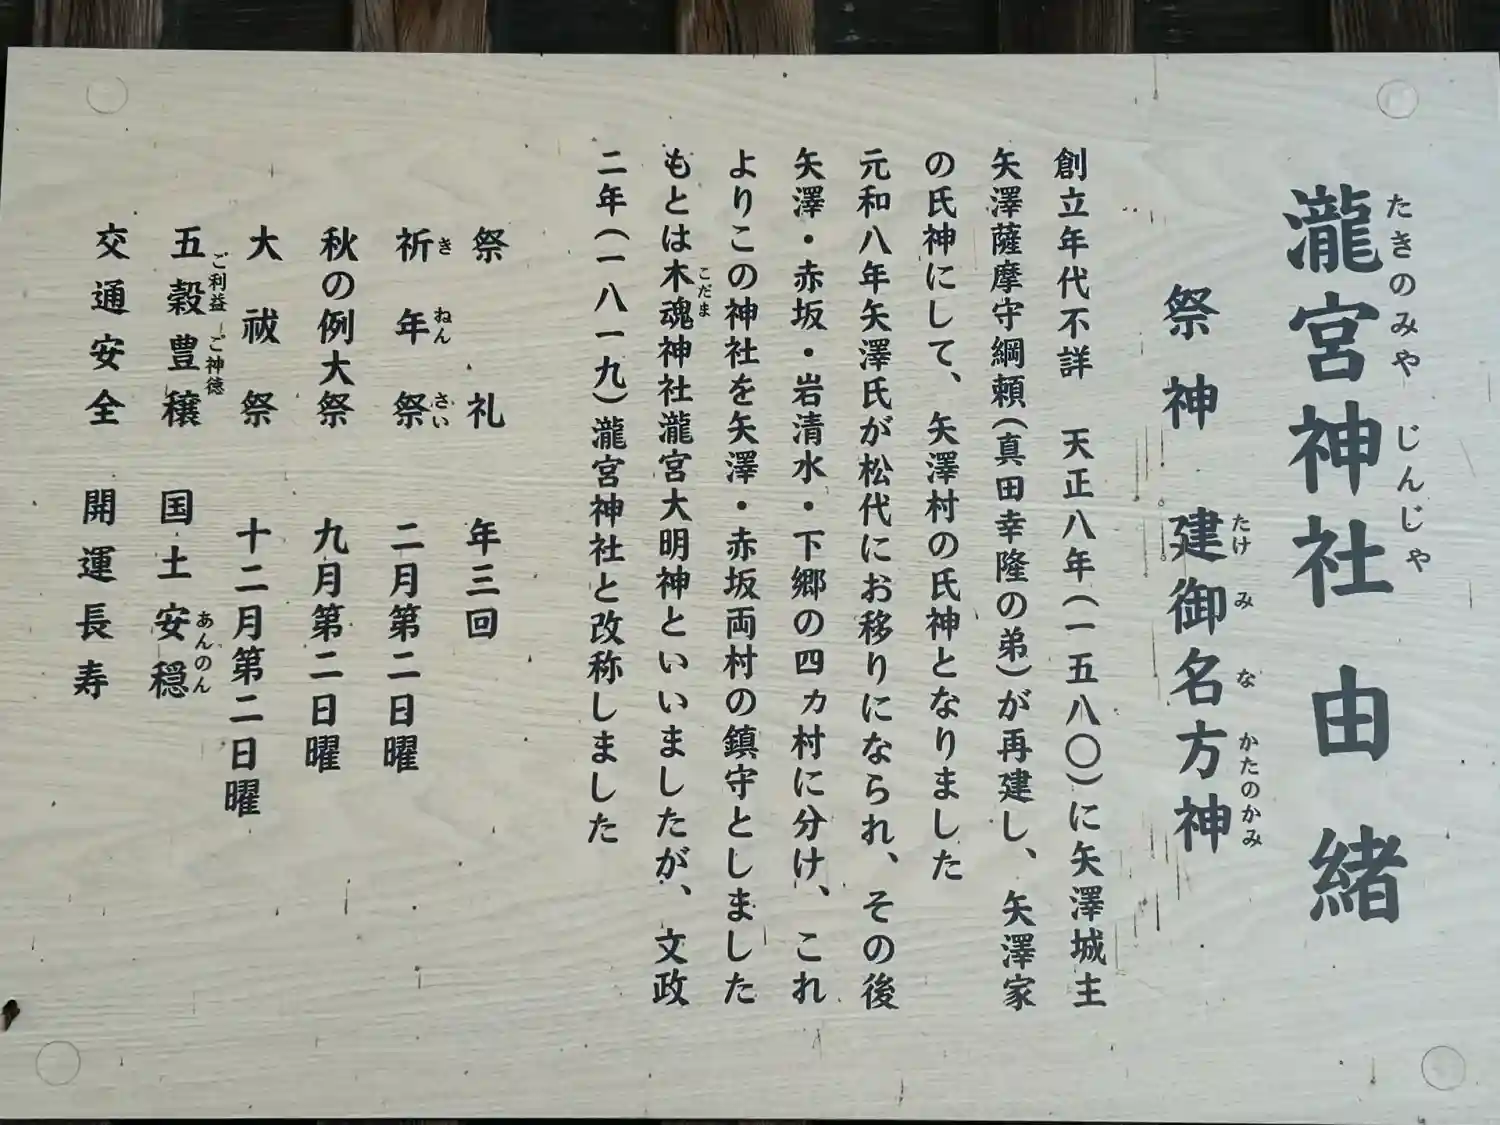 瀧宮神社由緒
たきのみや じんじゃ
祭神 建御名方神
たけ み な かたのかみ
創立年代不詳 天正八年(一五八〇)に矢澤城主
矢澤薩摩守綱頼(真田幸隆の弟)が再建し、矢澤家
の氏神にして、矢澤村の氏神となりました
元和八年矢澤氏が松代にお移りになられ、その後
矢澤・赤坂・岩清水・下郷の四カ村に分け、これ
よりこの神社を矢澤・赤坂両村の鎮守としました
もとは木魂神社瀧宮大明神といいましたが、文政
こだま
二年(一八一九)瀧宮神社と改称しました
祭礼 年三回
祈年祭 二月第二日曜
き ねん さい
秋の例大祭 九月第二日曜
大祓祭 十二月第二日曜
ご利益 ご神徳
五穀豊穣 国土安穏
あんのん
交通安全 開運長寿